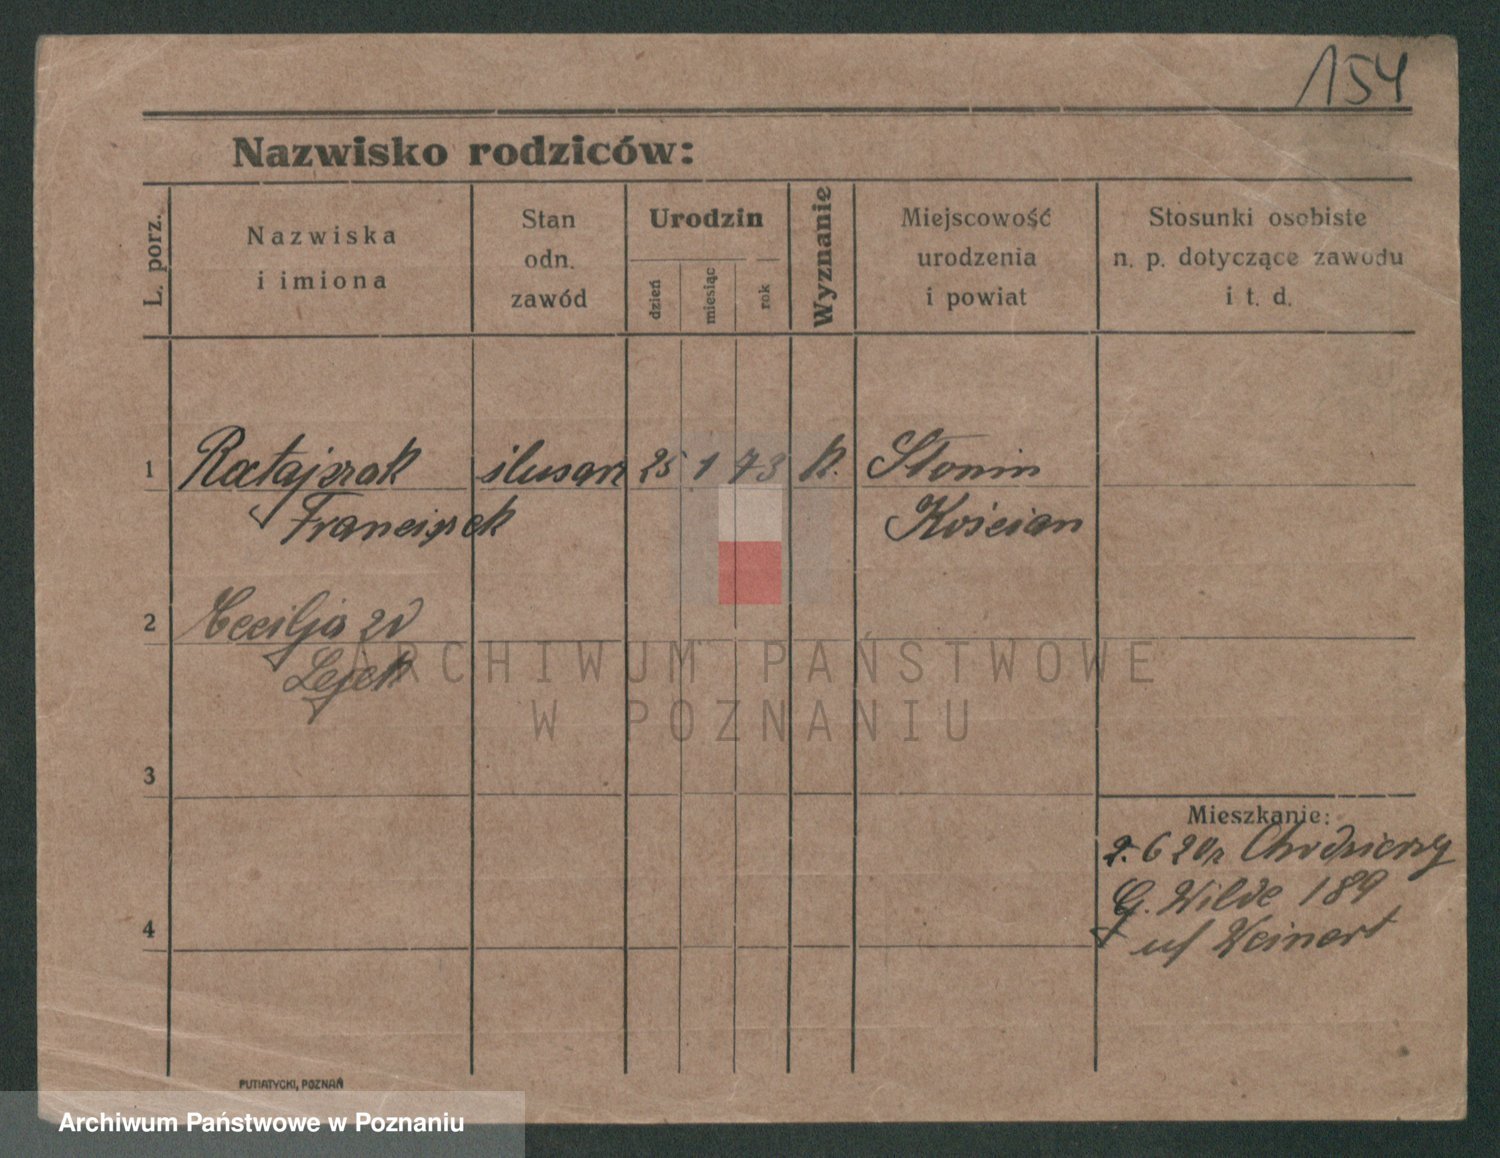 154
Nazwisko rodziców:
L. porz.
Nazwiska
i imiona
Stan
odn.
zawód
Urodzin
dzień
miesiąc
rok
Wyznanie
Miejscowość
urodzenia
i powiat
Stosunki osobiste
n. p. dotyczące zawodu
i t. d.
1 Ratajszak ślusarz 25 1 73 k. Słonin
Franciszek Kościan
2 Cecilja
Lejek
ARCHIWUM PAŃSTWOWE
W POZNANIU
3
Mieszkanie:
2. 6 20 Chodzierzy
G. Wilde 189
4
Weinert
PUTIATYCKI, POZNAŃ
Archiwum Państwowe w Poznaniu